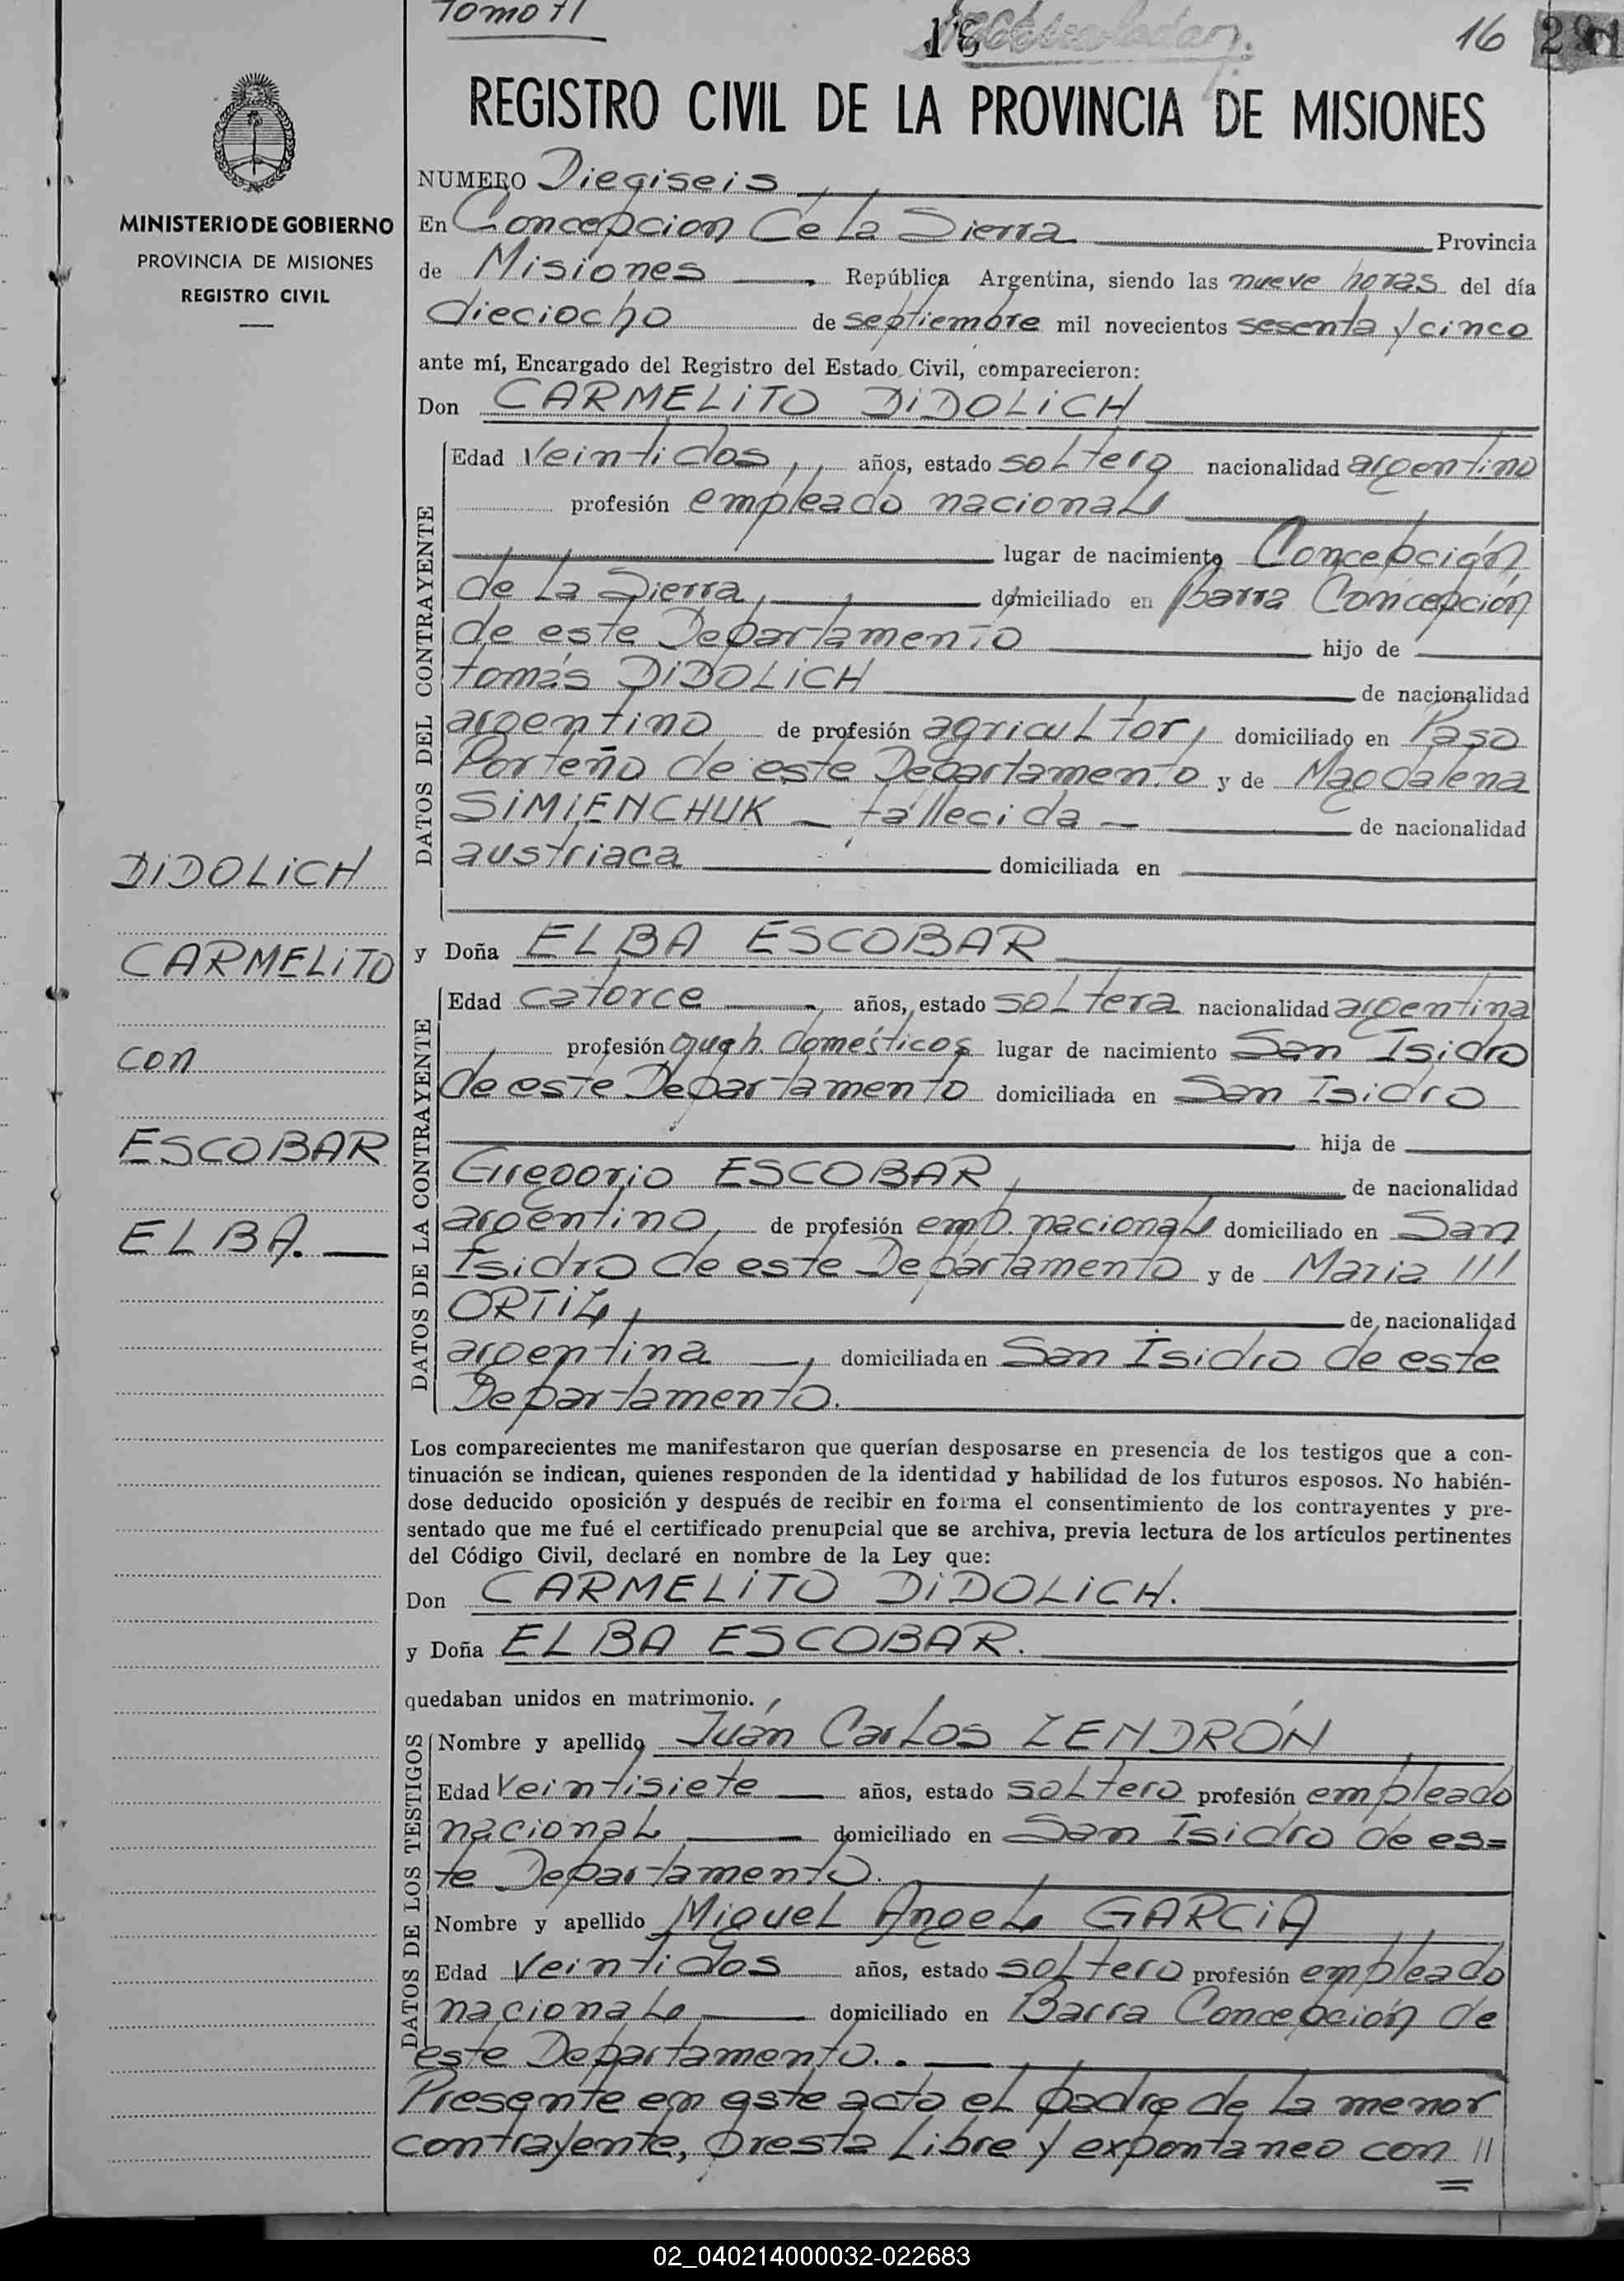 Tomo II
16
REGISTRO CIVIL DE LA PROVINCIA DE MISIONES
MINISTERIO DE GOBIERNO
PROVINCIA DE MISIONES
REGISTRO CIVIL
NUMERO Diegiseis
En Concepcion de La Sierra Provincia
de Misiones República Argentina, siendo las nueve horas del día
dieciocho de septiembre mil novecientos sesenta y cinco
ante mí, Encargado del Registro del Estado Civil, comparecieron:
Don CARMELITO DIDOLICH
DATOS DEL CONTRAYENTE
Edad veintidos años, estado soltero nacionalidad argentino
profesión empleado nacional
lugar de nacimiento Concepción
de La Sierra, domiciliado en Barra Concepción
de este Departamento hijo de
tomás DIDOLICH de nacionalidad
argentino de profesión agricultor, domiciliado en Paso
Porteño de este Departamento y de Magdalena
SIMIENCHUK - fallecida - de nacionalidad
austriaca domiciliada en
DIDOLICH
CARMELITO
con
ESCOBAR
ELBA.
y Doña ELBA ESCOBAR
DATOS DE LA CONTRAYENTE
Edad catorce años, estado soltera nacionalidad argentina
profesión queh. domésticos lugar de nacimiento San Isidro
de este Departamento domiciliada en San Isidro
hija de
Gregorio ESCOBAR, de nacionalidad
argentino de profesión emp. nacional domiciliado en San
Isidro de este Departamento y de Maria ///
ORTIZ, de nacionalidad
argentina, domiciliada en San Isidro de este
Departamento.
Los comparecientes me manifestaron que querían desposarse en presencia de los testigos que a con-
tinuación se indican, quienes responden de la identidad y habilidad de los futuros esposos. No habién-
dose deducido oposición y después de recibir en forma el consentimiento de los contrayentes y pre-
sentado que me fué el certificado prenupcial que se archiva, previa lectura de los artículos pertinentes
del Código Civil, declaré en nombre de la Ley que:
Don CARMELITO DIDOLICH.
y Doña ELBA ESCOBAR.
quedaban unidos en matrimonio.
DATOS DE LOS TESTIGOS
Nombre y apellido Juan Carlos ZENDRÓN
Edad veintisiete años, estado soltero profesión empleado
nacional domiciliado en San Isidro de es=
te Departamento.
Nombre y apellido Miguel Angel GARCIA
Edad veintidos años, estado soltero profesión empleado
nacional domiciliado en Barra Concepción de
este Departamento.
Presente en este acto el padre de la menor
contrayente, presta libre y expontaneo con //
02_040214000032-022683